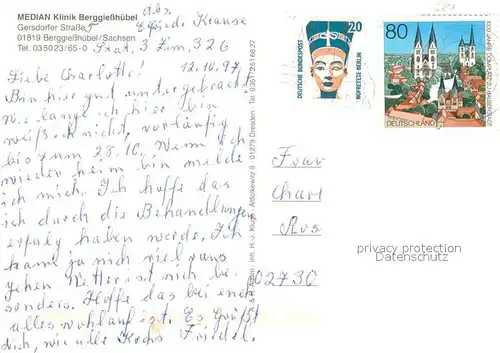 MEDIAN Klinik Berggießhübel
Gersdorfer Straße 5
01819 Berggießhübel/Sachsen
Tel. 035023/65-0
Abs.
Elfriede Krause
Stat. 3 Zim. 326
12.10.97
Liebe Charlotte!
Bin hier gut untergebracht
wie lange ich hier bin
weiß ich nicht, vorläufig
bis zum 28.10. Wenn ich
wieder heim bin melde
ich mich. Ich hoffe das
ich durch die Behandlungen
erfolg haben werde. Ich
kann ja nich viel raus
gehen Wetter ist nich be-
sonders. Hoffe das bei euch
alles wohlauf ist. Es grüßt
dich, wie alle Friedel.
01279 Dresden
20
DEUTSCHE BUNDESPOST
NOFRETETE·BERLIN
80
DEUTSCHLAND
Frau
Charl
Ros
02730
privacy protection
Datenschutz